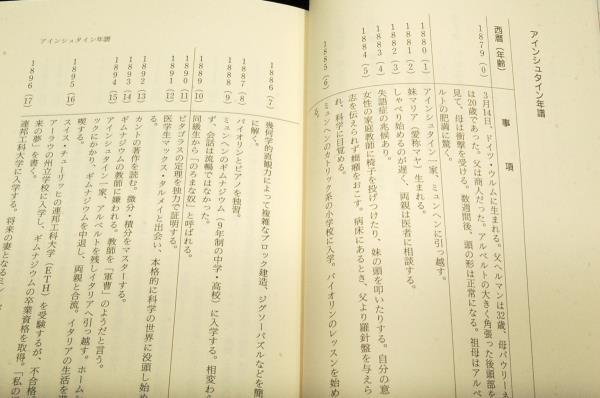 アインシュタイン年譜
西暦（年齢） 事項
1879（0） 3月14日、ドイツ・ウルムに生まれる。父ヘルマンは32歳、母パウリーネ
は20歳であった。父は商人だった。アルベルトの大きく角張った後頭部を
見て、母は衝撃を受ける。数週間後、頭の形は正常になる。祖母はアルベ
ルトの肥満に驚く。
1880（1） アインシュタイン一家、ミュンヘンに引っ越す。
1881（2） 妹マリア（愛称マヤ）生まれる。
1882（3） しゃべり始めるのが遅く、両親は医者に相談する。
1883（4） 失語症の兆候あり。
1884（5） 女性の家庭教師に椅子を投げつけたり、妹の頭を叩いたりする。自分の意
志を伝えられず癇癪をおこす。病床にあるとき、父より羅針盤を与えら
れ、科学に目覚める。
1885（6） ミュンヘンのカトリック系の小学校に入学。バイオリンのレッスンを始め
る。
アインシュタイン年譜
1886（7） 幾何学的直観力によって複雑なブロック建造、ジグソーパズルなどを簡
に解く。
1887（8） バイオリンとピアノを独習。
1888（9） ミュンヘンのギムナジウム（9年制の中学・高校）に入学する。相変わら
ず、会話は流暢ではなかった。
1889（10） 同級生から「のろまな奴」と呼ばれる。
1890（11） ピタゴラスの定理を独力で証明する。
1891（12） 医学生マックス・タルメイと出会い、本格的に科学の世界に没頭し始め
る。
1892（13） カントの著作を読む。微分・積分をマスターする。
1893（14） ギムナジウムの教師に嫌われる。教師を「軍曹」のようだと言う。
1894（15） アインシュタイン一家、アルベルトを残しイタリアへ引っ越す。ホーム
ックにかかり、ギムナジウムを中退し、両親と合流。イタリアの生活を
1895（16） スイス・チューリッヒの連邦工科大学（ETH）を受験するが、不合格
アーラウの州立学校に入学し、ギムナジウムの卒業資格を取得。「私の
来の夢」を書く。
1896（17） 連邦工科大学に入学する。将来の妻となるミレ